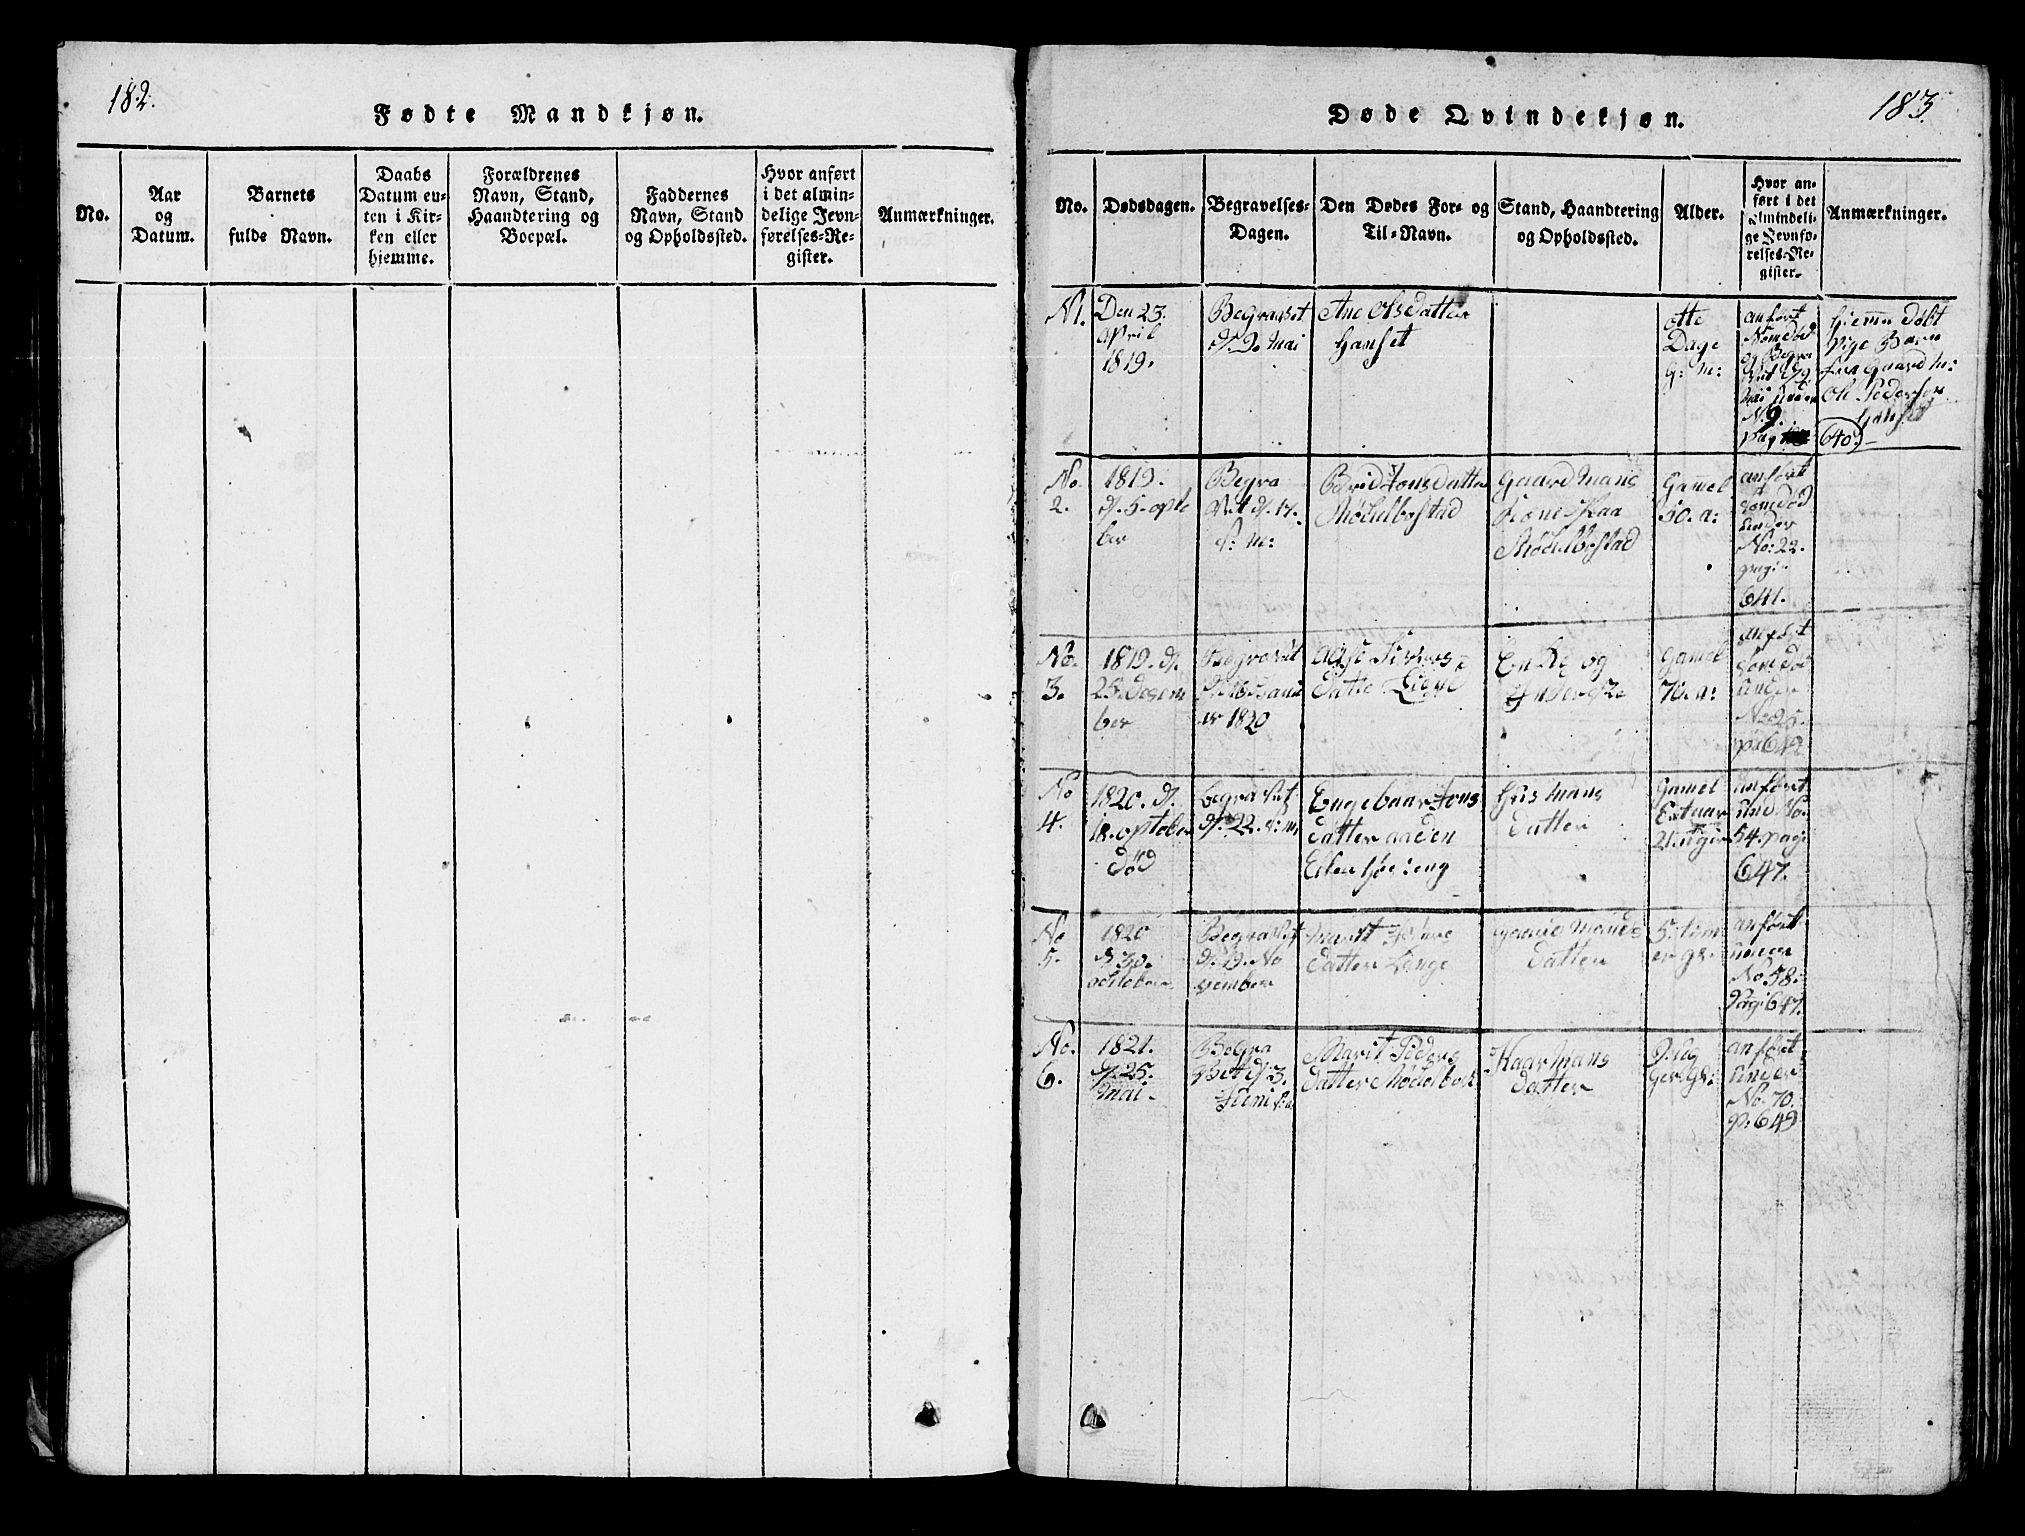 182.
Fødte Mandkjøn.
No.
Aar
og
Datum.
Barnets
fulde Navn.
Daabs
Datum en-
ten i Kir-
ken eller
hjemme.
Forældrenes
Navn, Stand,
Haandtering og
Boepæl.
Faddernes
Navn, Stand
og Opholdssted.
Hvor anført
i det almin-
delige Jevn-
førelses-Re-
gister.
Anmærkninger.
183
Døde Qvindekjøn.
No.
Dødsdagen.
Begravelses-
Dagen.
Den Dødes For- og
Til-Navn.
Stand, Haandtering
og Opholdssted.
Alder.
Hvor an-
ført i det
almindeli-
ge Jevnfø-
relses-Re-
gister.
Anmærkninger.
N1.
Den 23.
april
1819.
Begravet
d. 9. Mai
Ane Olsdatter
Hanset
otte
Dage
g: m:
anført
som død
og Begra
N. 9.
pag
hiemme døbt
Pige Barn
Gaard M:
Ole Pedersen
Hanset
640)
No.
2.
1819.
d. 5. opto
ber
Begra
vet d. 17.
d: m:
Berid Jons Datter
Mødelbostad
Gaard Mans
Kone Haa
Mødelbostad
Gamel
50. a:
anført
som død
under
No: 22.
pagi
641.
No.
3.
1819. d.
25. desem
ber
Begravet
er 1820
Datter
Enke og
Gamel
70. a:
anført
som død
under
No 25.
No
4.
1820. d.
18. optober
død
begravet
d. 22. d: m
Engebaar Jons
datter aaden
Eng
Hus mans
datter
Gamel
Et aar
21. uger
anført
und No.
54. pag:
647.
No
5.
1820
d 30.
octobe
Begravet
d. 19. No
vember
Marit
datter Lange
gaard Mands
datter
5. tim
er gl.
anført
under
No 58.
Pag: 647.
No.
6.
1821.
d. 25.
Mai
Begra
vet d. 3.
Juni
Marit Peders
datter Mødelbost
Haar Mans
datter
9. ug
er gl:
anført
under
No. 70.
p: 649